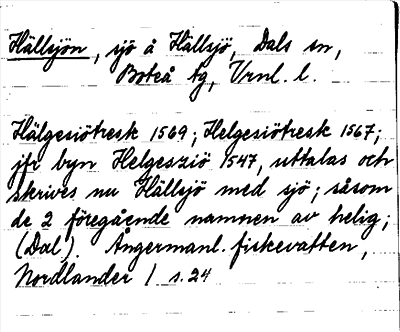 Hällsjön, sjö å Hällsjö, Dals sn,
Boteå tg, Vrnl. l.
Hälgesiötresk 1569; Helgesiötresk 1567;
jfr byn Helgesziö 1547, uttalas och
skrives nu Hällsjö med sjö; såsom
de 2 föregående namnen av helig;
(Dal). Ångermanl. fiskevatten,
Nordlander 1 s. 24